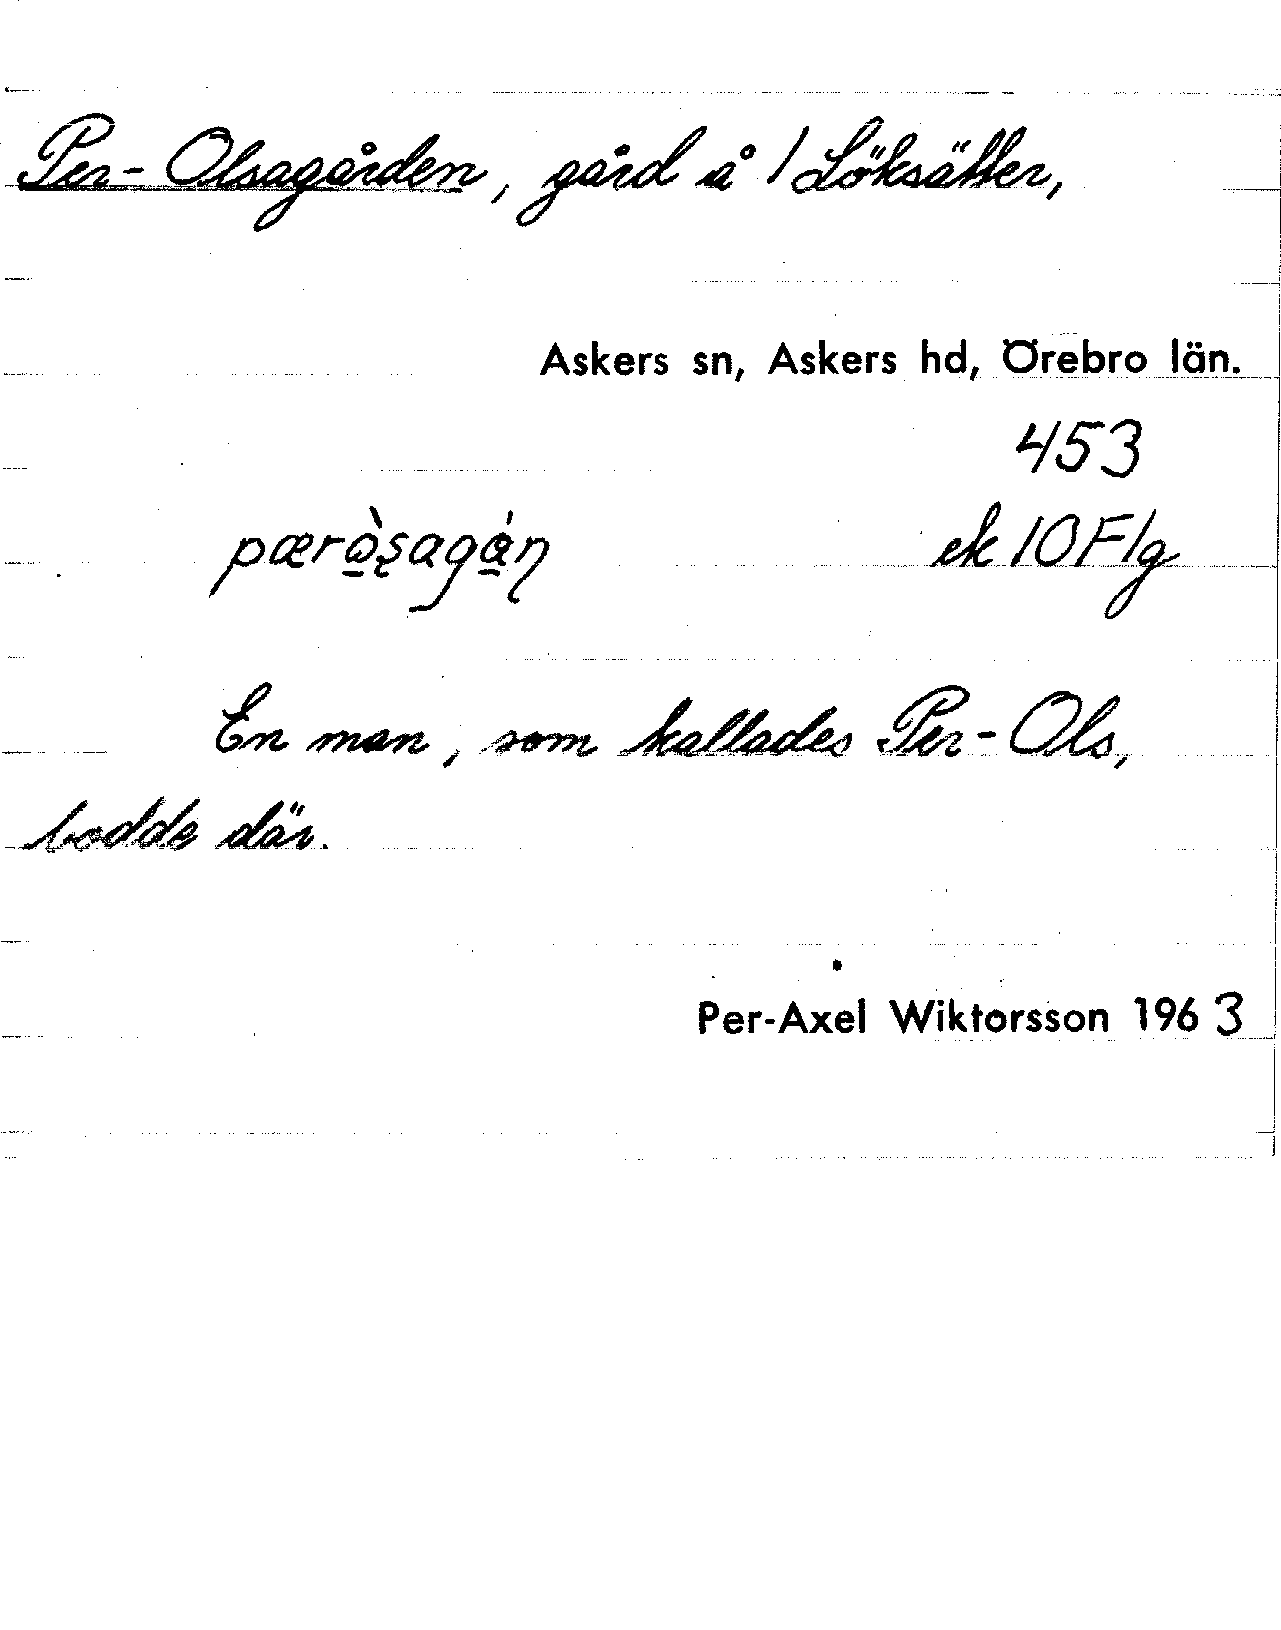 Per-Olsagården, gård å 1 Löksätter,
Askers sn, Askers hd, Örebro län.
453
ek 10 F 1g
En man, som kallades Per-Ols,
bodde där.
Per-Axel Wiktorsson 1963